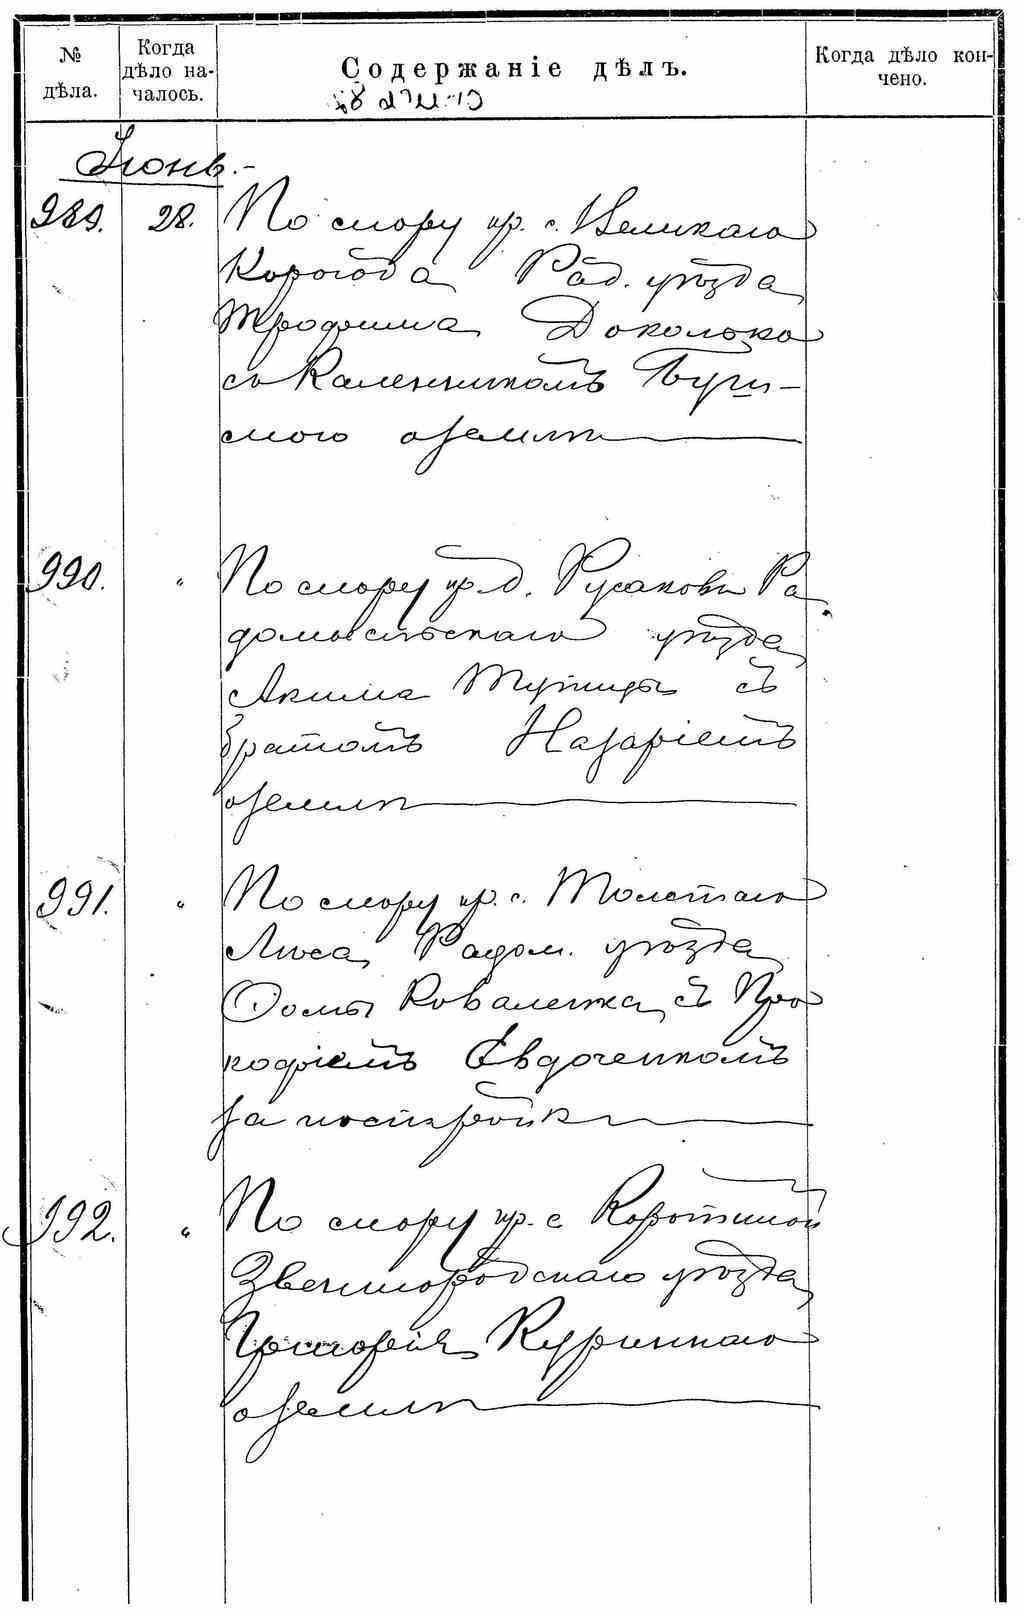 № дѣла.
Когда дѣло на-
чалось.
Содержаніе дѣлъ.
Когда дѣло кон-
чено.
Іюнь.-
989. 28. По спору кр. с. Великаго
Корогода Рад. уѣзда
Трофима Доколько
съ Каленикомъ
о землѣ
990. " По спору кр. д. Русаковки Ра
домысльскаго уѣзда
Акима съ
братомъ Назаріемъ
о землѣ
991. " По спору кр. с. Толстаго
Лѣса Радом. уѣзда
Фомы Коваленка съ Про
кофіемъ Евдоченкомъ
за постройки
992. " По спору кр. с.
Звенигородскаго уѣзда
Григорія
о землѣ